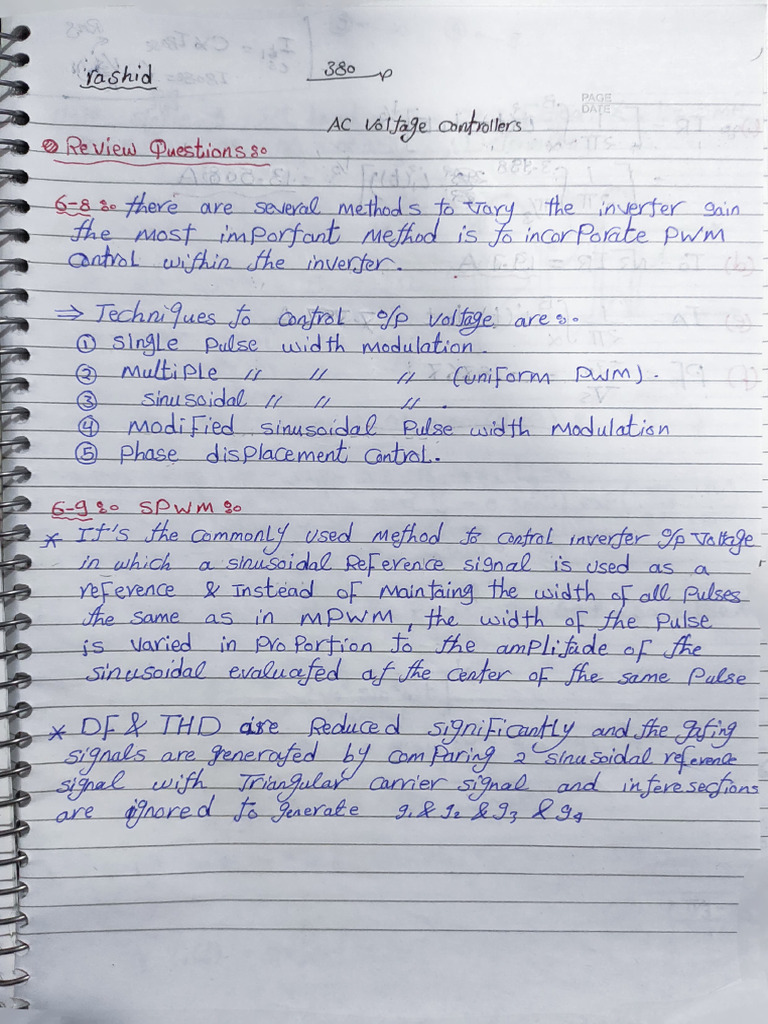 rashid 380 P
PAGE
DATE
AC Voltage Controllers
Review Questions :-
6-8 :- there are several methods to vary the inverter gain
the most important method is to incorporate PWM
control within the inverter.
⇒ Techniques to control o/p voltage are :-
① single pulse width modulation.
② multiple // // // (uniform PWM).
③ sinusoidal // // // .
④ modified sinusoidal pulse width modulation
⑤ phase displacement control.
6-9 :- SPWM :-
* It's the commonly used method to control inverter o/p voltage
in which a sinusoidal Reference signal is used as a
reference & Instead of maintaing the width of all pulses
the same as in MPWM, the width of the pulse
is varied in proportion to the amplitade of the
sinusoidal evaluated at the center of the same pulse
* DF & THD are Reduced significantly and the gating
signals are generated by comparing 2 sinusoidal reference
signal with Triangular carrier signal and interesections
are ignored to generate g1 & g2 & g3 & g4